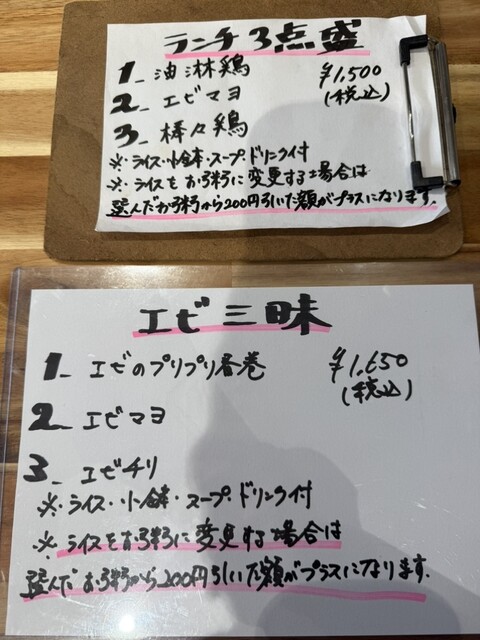 ランチ3点盛
1_ 油淋鶏
¥1,500
(税込)
2_ エビマヨ
3_ 棒々鶏
※・ライス・小鉢・スープ・ドリンク付
※・ライスをお粥に変更する場合は
選んだお粥から200円引いた額がプラスになります。
エビ三昧
1_ エビのプリプリ春巻
¥1,650
(税込)
2_ エビマヨ
3_ エビチリ
※・ライス・小鉢・スープ・ドリンク付
※・ライスをお粥に変更する場合は
選んだお粥から200円引いた額がプラスになります。